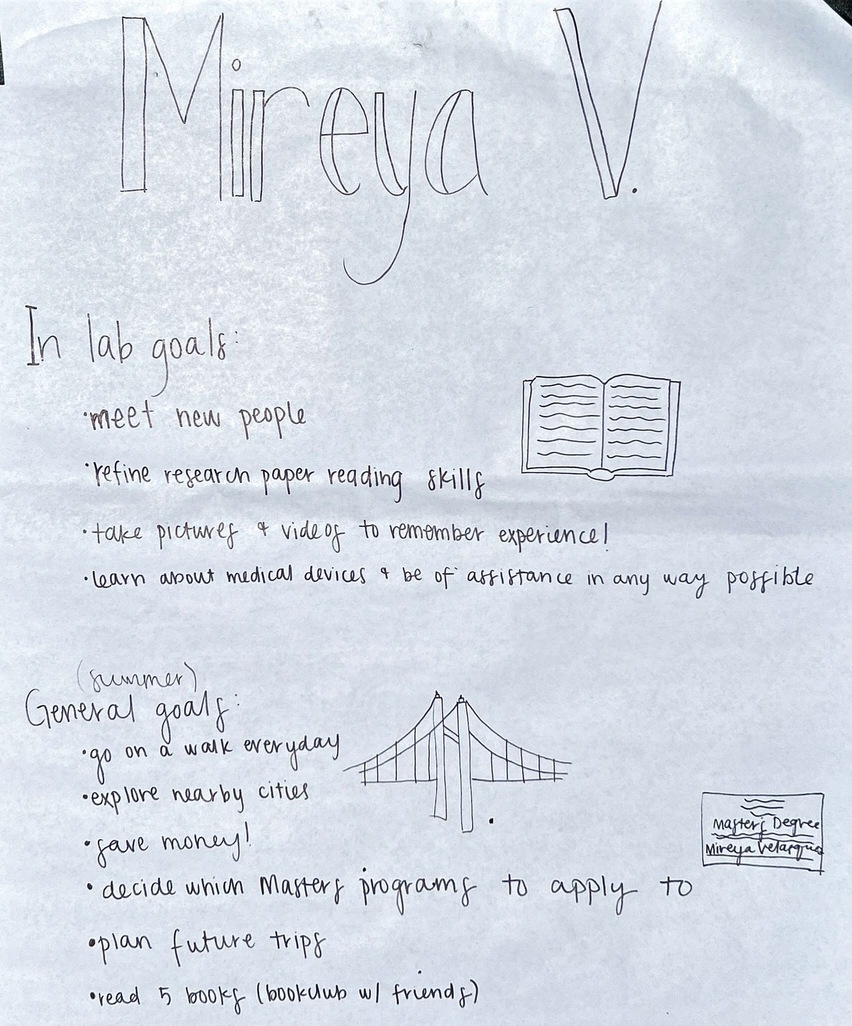 Mireya V.
In lab goals:
•meet new people
•refine research paper reading skills
•take pictures & videos to remember experience!
•learn about medical devices & be of assistance in any way possible
(summer)
General goals:
•go on a walk everyday
•explore nearby cities
•save money!
Masters Degree
Mireya Velasquez
•decide which Masters programs to apply to
•plan future trips
•read 5 books (bookclub w/ friends)